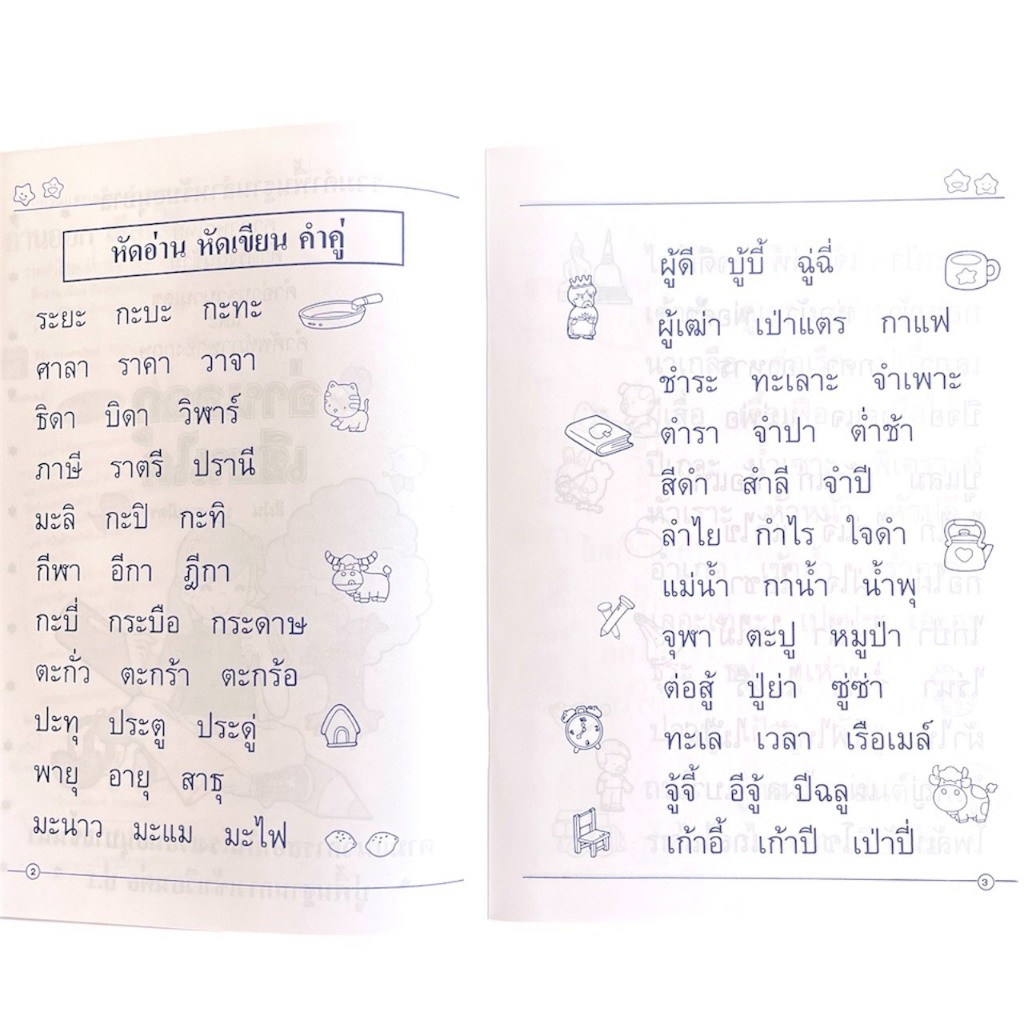 หัดอ่าน หัดเขียน คำคู่
ระยะ กะบะ กะทะ
ศาลา ราคา วาจา
ธิดา บิดา วิพาร์
ภาษี ราตรี ปรานี
มะลิ กะปิ กะทิ
กีฬา อีกา ฎีกา
กะบี่ กระบือ กระดาษ
ตะกั่ว ตะกร้า ตะกร้อ
ปะทุ ประตู ประดู่
พายุ อายุ สาธุ
มะนาว มะแม มะไฟ
2
ผู้ดี บู้บี้ ฉู่ฉี่
ผู้เฒ่า เป่าแตร กาแฟ
ชำระ ทะเลาะ จำเพาะ
ตำรา จำปา ต่ำช้า
สีดำ สำลี จำปี
ลำไย กำไร ใจดำ
แม่น้ำ กาน้ำ น้ำพุ
จุฬา ตะปู หมูป่า
ต่อสู้ ปู่ย่า ซู่ซ่า
ทะเล เวลา เรือเมล์
จู้จี้ อีจู้ ปีฉลู
เก้าอี้ เก้าปี เป่าปี่
3